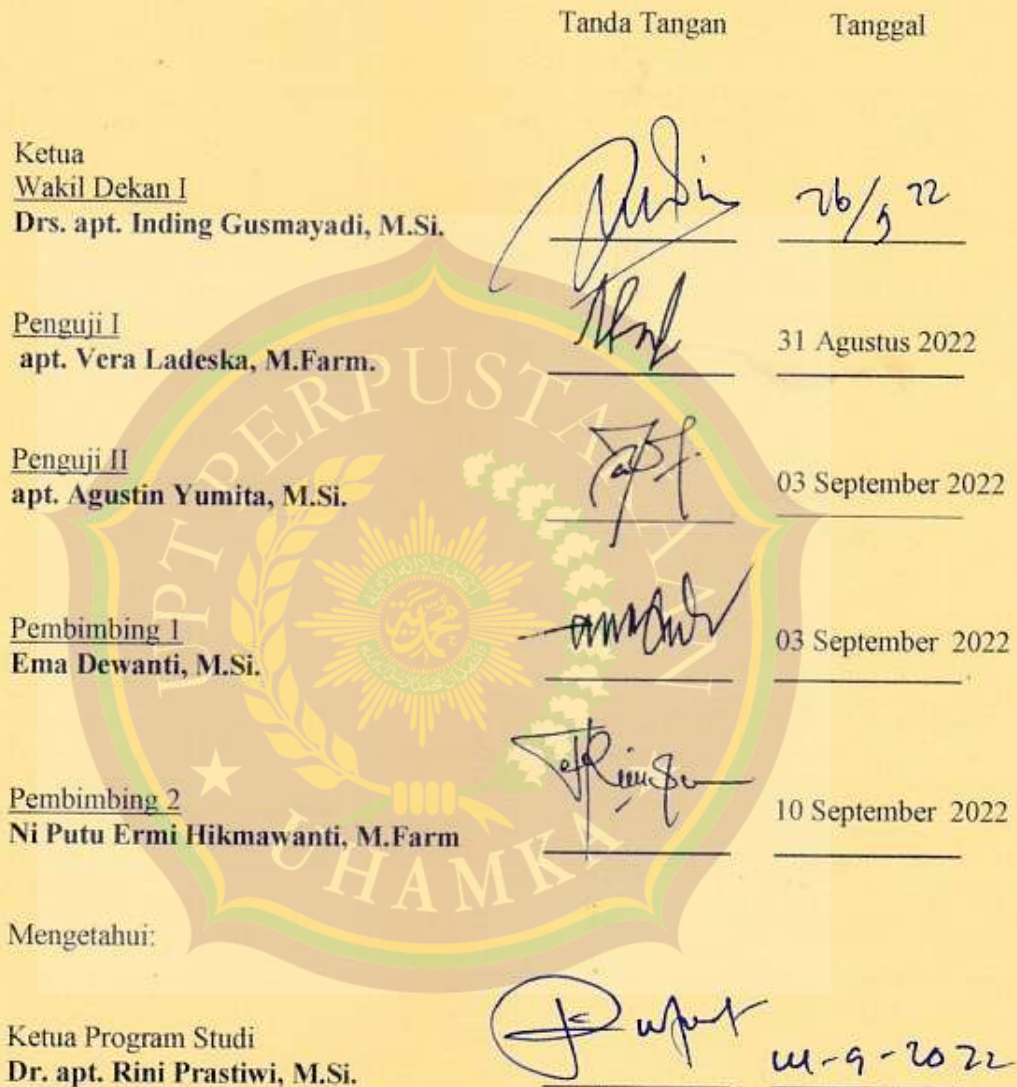 Tanda Tangan Tanggal
Ketua
Wakil Dekan I
Drs. apt. Inding Gusmayadi, M.Si.
Penguji I
apt. Vera Ladeska, M.Farm.
31 Agustus 2022
Penguji II
apt. Agustin Yumita, M.Si.
03 September 2022
Pembimbing 1
Ema Dewanti, M.Si.
03 September 2022
Pembimbing 2
Ni Putu Ermi Hikmawanti, M.Farm
10 September 2022
Mengetahui:
Ketua Program Studi
Dr. apt. Rini Prastiwi, M.Si.
UPT PERPUSTAKAAN
UHAMKA